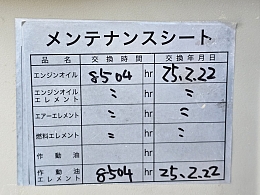 メンテナンスシート
品名 交換時間 交換年月日
エンジンオイル 8504 hr 25.2.22
エンジンオイルエレメント 〃 hr 〃
エアーエレメント 〃 hr 〃
燃料エレメント 〃 hr 〃
作動油 hr
作動油エレメント 8504 hr 25.2.22